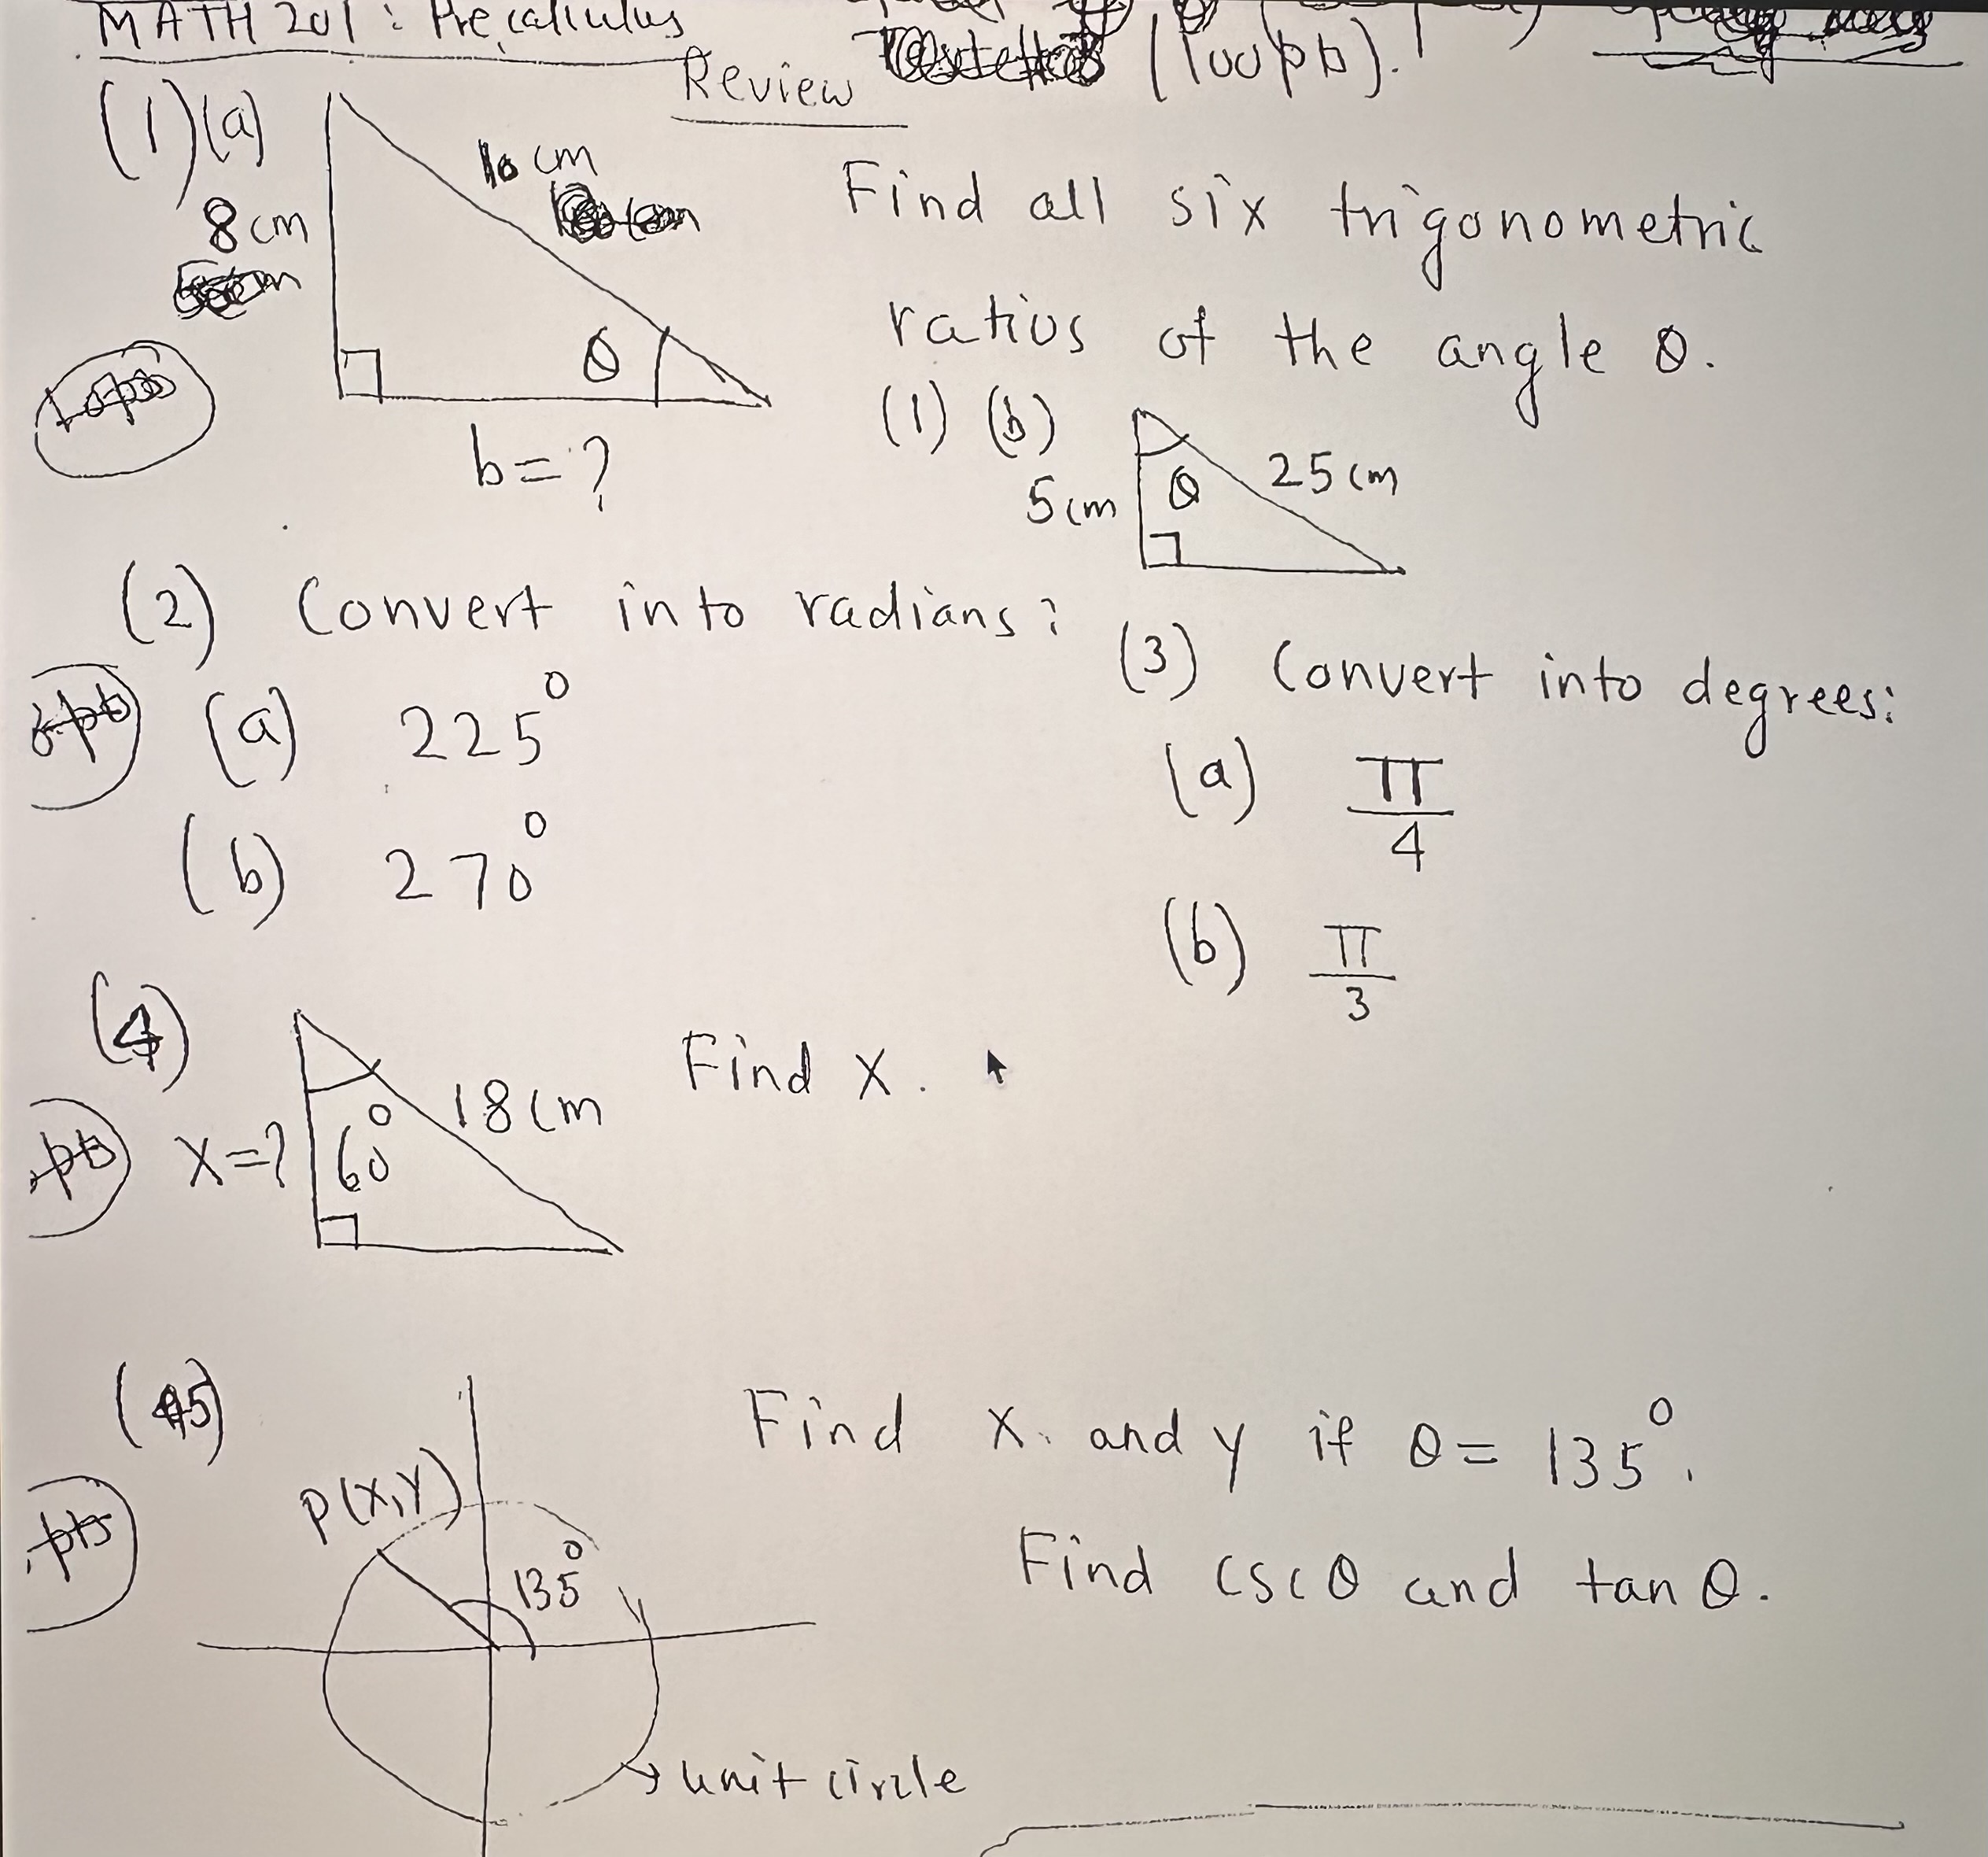 MATH 201: Precalculus
Review
(100 pts).
(1)(a)
10 cm
8 cm
θ
b = ?
Find all six trigonometric
ratios of the angle θ.
(1) (b)
5 cm
θ
25 cm
(2) Convert into radians:
(a) 225°
(b) 270°
(3) Convert into degrees:
(a) π/4
(b) π/3
(4)
x = ?
60°
18 cm
Find x.
(5)
P(x,y)
135°
unit circle
Find x and y if θ = 135°.
Find csc θ and tan θ.